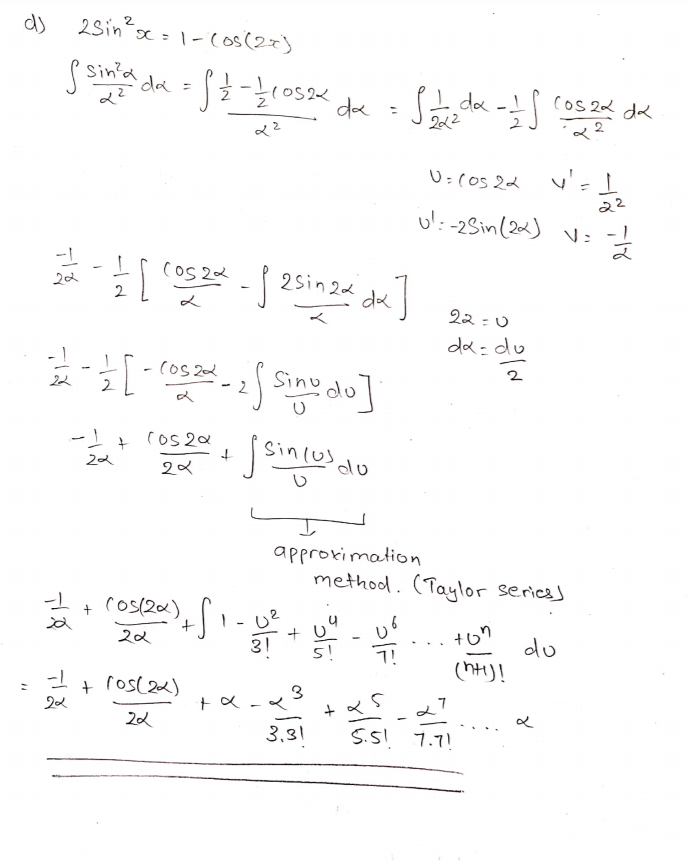 d) 2Sin²x = 1 - Cos(2x)
∫ Sin²α/α² dα = ∫ (1/2 - 1/2 Cos2α)/α² dα = ∫ 1/2α² dα - 1/2 ∫ Cos2α/α² dα
U = Cos2α V' = 1/α²
U' = -2Sin(2α) V = -1/α
-1/2α - 1/2 [ Cos2α/α - ∫ 2Sin2α/α dα ]
2α = U
dα = du/2
-1/2α - 1/2 [ - Cos2α/α - 2 ∫ Sinu/U du ]
-1/2α + Cos2α/2α + ∫ Sin(u)/U du
approximation
method. (Taylor series)
-1/2α + Cos(2α)/2α + ∫ 1 - U²/3! + U⁴/5! - U⁶/7! ... + Uⁿ/(n+1)! du
= -1/2α + Cos(2α)/2α + α - α³/3.3! + α⁵/5.5! - α⁷/7.7! .... α